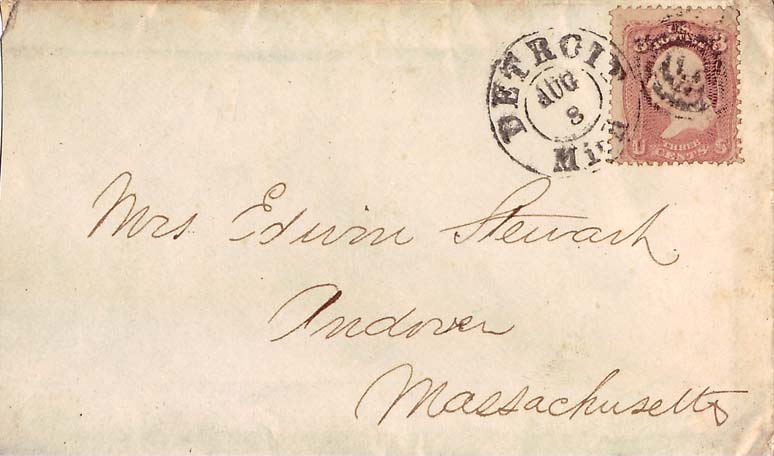 DETROIT
AUG
8
Mich
U THREE S
CENTS
Mrs Edwin Stewart
Andover
Massachusetts